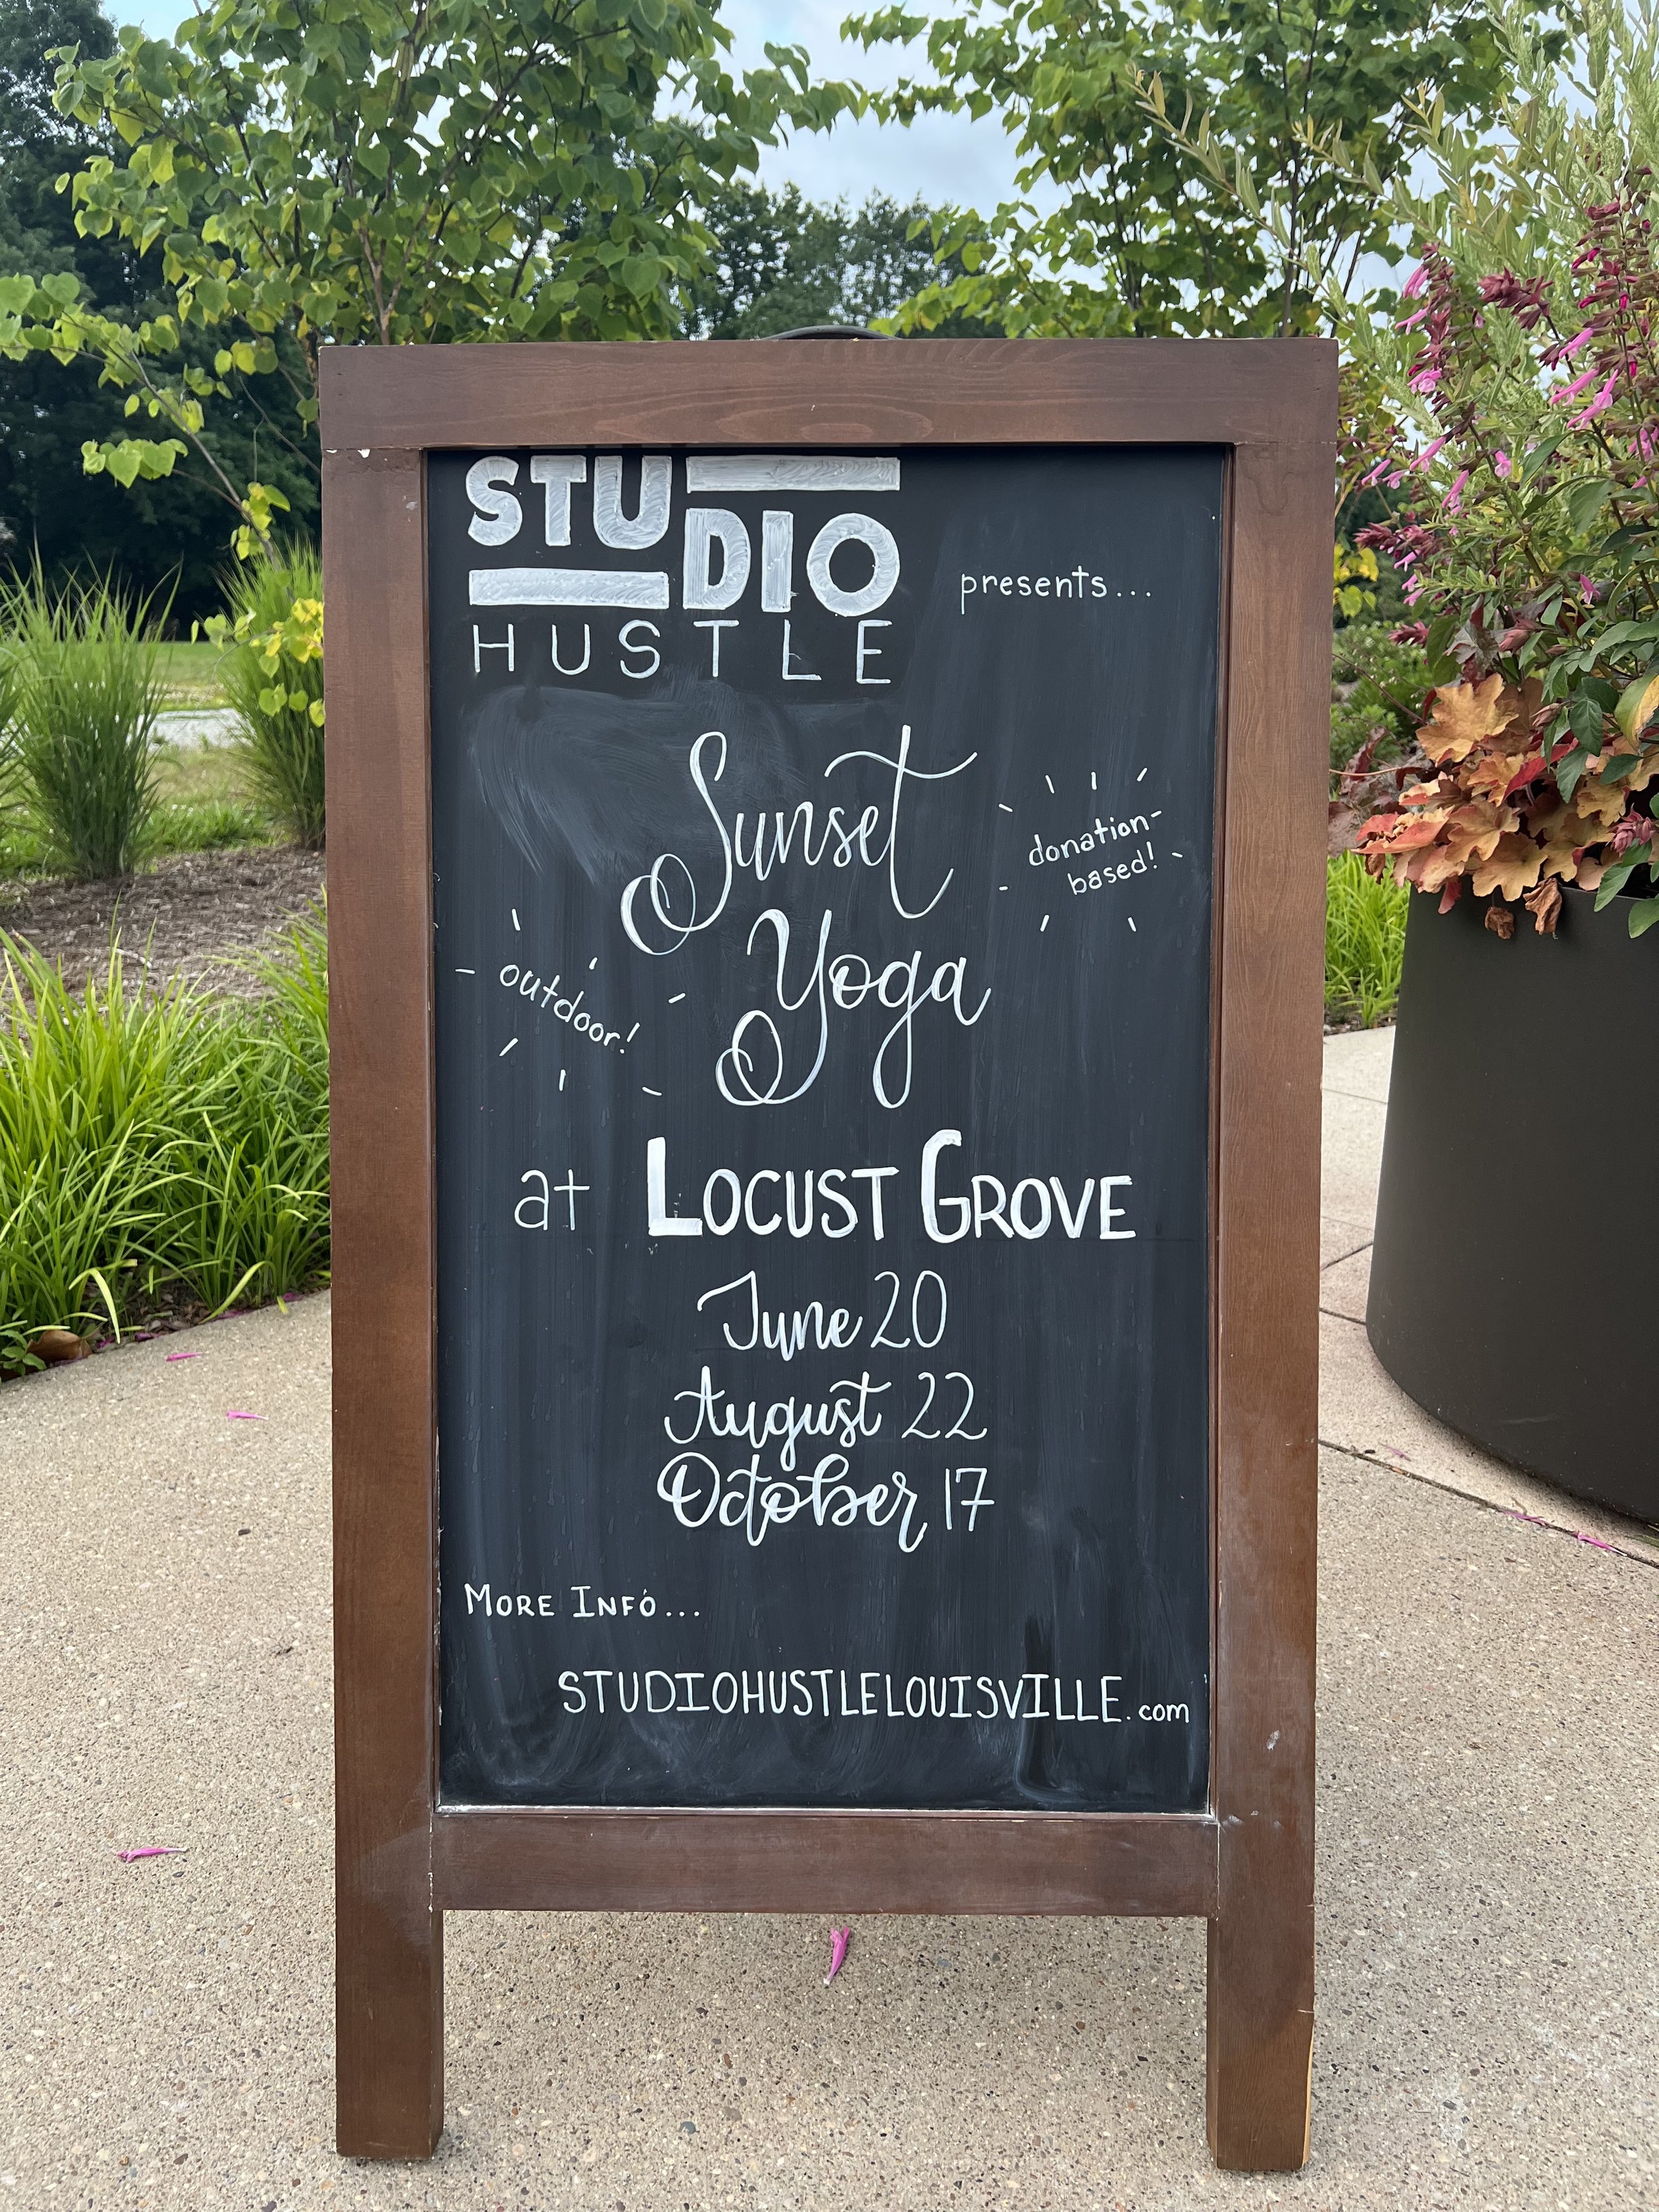 STUDIO
HUSTLE
presents...
Sunset
donation-
based!
Yoga
outdoor!
at LOCUST GROVE
June 20
August 22
October 17
MORE INFO...
STUDIOHUSTLELOUISVILLE.com